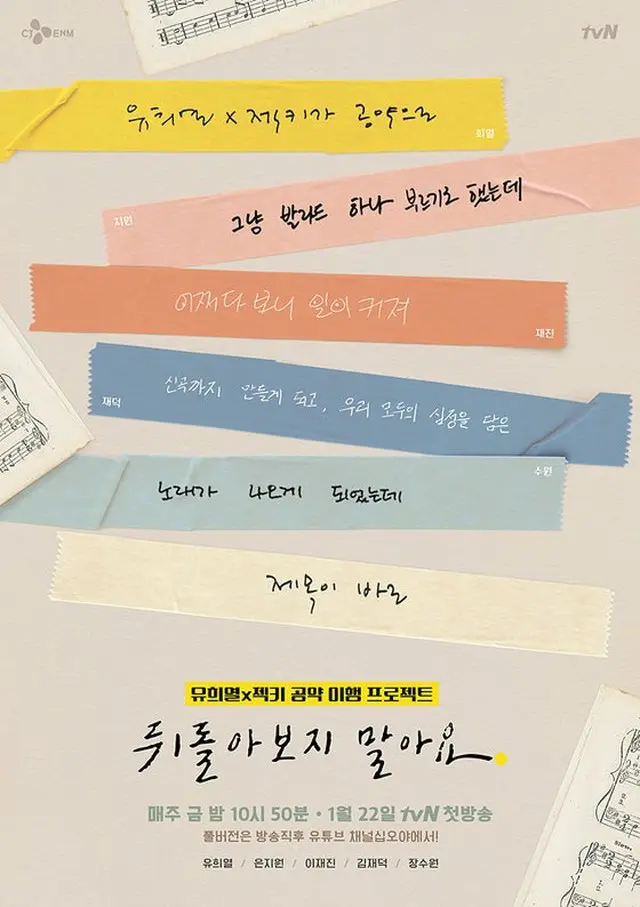 CJ ENM
tvN
유희열 x 젝키가 공약으로
희열
지원
그냥 발라드 하나 부르기로 했는데
어쩌다 보니 일이 커져
재진
재덕
신곡까지 만들게 되고, 우리 모두의 심정을 담은
수원
노래가 나오게 되었는데
제목이 바로
유희열x젝키 공약 이행 프로젝트
뒤돌아보지 말아요.
매주 금 밤 10시 50분 • 1월 22일 tvN 첫방송
풀버전은 방송직후 유튜브 채널십오야에서!
유희열 / 은지원 / 이재진 / 김재덕 / 장수원